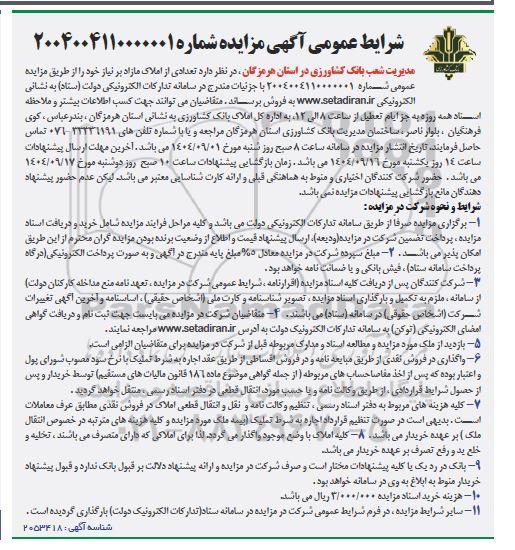 شرایط عمومی آگهی مزایده شماره ۲۰۰۴۰۰۴۱۱۰۰۰۰۰۰۱
مدیریت شعب بانک کشاورزی در استان هرمزگان ، در نظر دارد تعدادی از املاک مازاد بر نیاز خود را از طریق مزایده
عمومی شماره ۲۰۰۴۰۰۴۱۱۰۰۰۰۰۰۱ با جزئیات مندرج در سامانه تدارکات الکترونیکی دولت (ستاد) به نشانی
الکترونیکی www.setadiran.ir به فروش برساند . متقاضیان می توانند جهت کسب اطلاعات بیشتر و ملاحظه
اسناد همه روزه به جز ایام تعطیل از ساعت ۸ الی ۱۲، به اداره کل املاک بانک کشاورزی به نشانی استان هرمزگان ، بندرعباس ، کوی
فرهنگیان ، بلوار ناصر ، ساختمان مدیریت بانک کشاورزی استان هرمزگان مراجعه و یا با شماره تلفن های ۳۳۳۳۱۱۹۱-۰۷۱ تماس
حاصل فرمایند. تاریخ انتشار مزایده در سامانه ساعت ۸ صبح روز شنبه مورخ ۱۴۰۴/۰۹/۰۱ می باشد . آخرین مهلت ارسال پیشنهادات
ساعت ۱۴ روز یکشنبه مورخ ۱۴۰۴/۰۹/۱۶ می باشد . زمان بازگشایی پیشنهادات ساعت ۱۰ صبح روز دوشنبه مورخ ۱۴۰۴/۰۹/۱۷
می باشد . حضور شرکت کنندگان اختیاری و منوط به هماهنگی قبلی و ارائه کارت شناسایی معتبر می باشد. لیکن عدم حضور پیشنهاد
دهندگان مانع بازگشایی پیشنهادات مزایده نمی باشد.
شرایط و نحوه شرکت در مزایده :
۱- برگزاری مزایده صرفا از طریق سامانه تدارکات الکترونیکی دولت می باشد و کلیه مراحل فرایند مزایده شامل خرید و دریافت اسناد
مزایده ، پرداخت تضمین شرکت در مزایده(ودیعه)، ارسال پیشنهاد قیمت و اطلاع از وضعیت برنده بودن مزایده گران محترم از این طریق
امکان پذیر می باشد . ۲- مبلغ سپرده شرکت در مزایده معادل ۵% مبلغ پایه مندرج در آگهی و به صورت پرداخت الکترونیکی(درگاه
پرداخت سامانه ستاد) ، فیش بانکی و یا ضمانت نامه خواهد بود.
۳- شرکت کنندگان پس از دریافت کلیه اسناد مزایده (اقرارنامه ، شرایط عمومی شرکت در مزایده ، تعهد نامه منع مداخله کارکنان دولت)
از سامانه ، ملزم به تکمیل و بارگذاری اسناد مزایده ، تصویر شناسنامه و کارت ملی (اشخاص حقیقی) ، اساسنامه و آخرین آگهی تغییرات
شرکت (اشخاص حقوقی) در سامانه (ستاد) می باشند . ۴- متقاضیان شرکت در مزایده می بایست جهت ثبت نام و دریافت گواهی
امضای الکترونیکی (توکن) به سامانه تدارکات الکترونیک دولت به آدرس www.setadiran.ir مراجعه نمایند.
۵- بازدید از ملک مورد مزایده و مطالعه اسناد و مدارک مربوطه قبل از شرکت در مزایده برای متقاضیان الزامی است.
۶- واگذاری در فروش نقدی از طریق مبایعه نامه و در فروش اقساطی از طریق عقد اجاره به شرط تملیک با نرخ سود مصوب شورای پول
و اعتبار بوده که پس از اخذ مفاصاحساب های مربوطه ( از جمله گواهی موضوع ماده ۱۸۶ قانون مالیات های مستقیم) توسط خریدار و پس
از حصول شرایط قراردادی ، از طریق وکالت نامه و یا حسب مورد، انتقال قطعی در دفتر اسناد رسمی ، منتقل خواهد گردید.
۷- کلیه هزینه های مربوط به دفتر اسناد رسمی ، تنظیم وکالت نامه و نقل و انتقال قطعی املاک در فروش نقدی مطابق عرف معاملات
است . بدیهی است در صورت تنظیم قرارداد اجاره به شرط تملیک (بیمه ملک مورد مزایده و کلیه هزینه های مترتبه در خصوص انتقال
ملک ) بر عهده خریدار می باشد . ۸- کلیه املاک با وضع موجود واگذار می گردد. لذا برای املاکی که دارای متصرف می باشند ، تخلیه و
خلع ید و رفع تصرف بر عهده خریدار می باشد.
۹- بانک در رد یک یا کلیه پیشنهادات مختار است و صرف شرکت در مزایده و ارائه پیشنهاد دلالت بر قبول بانک ندارد و قبول پیشنهاد
خریدار منوط به ابلاغ به وی در سامانه خواهد بود.
۱۰- هزینه خرید اسناد مزایده ۳/۰۰۰/۰۰۰ ریال می باشد.
۱۱- سایر شرایط مزایده ، در فرم شرایط عمومی شرکت در مزایده در سامانه ستاد(تدارکات الکترونیک دولت) بارگذاری گردیده است .
شناسه آگهی : ۲۰۵۳۴۱۸